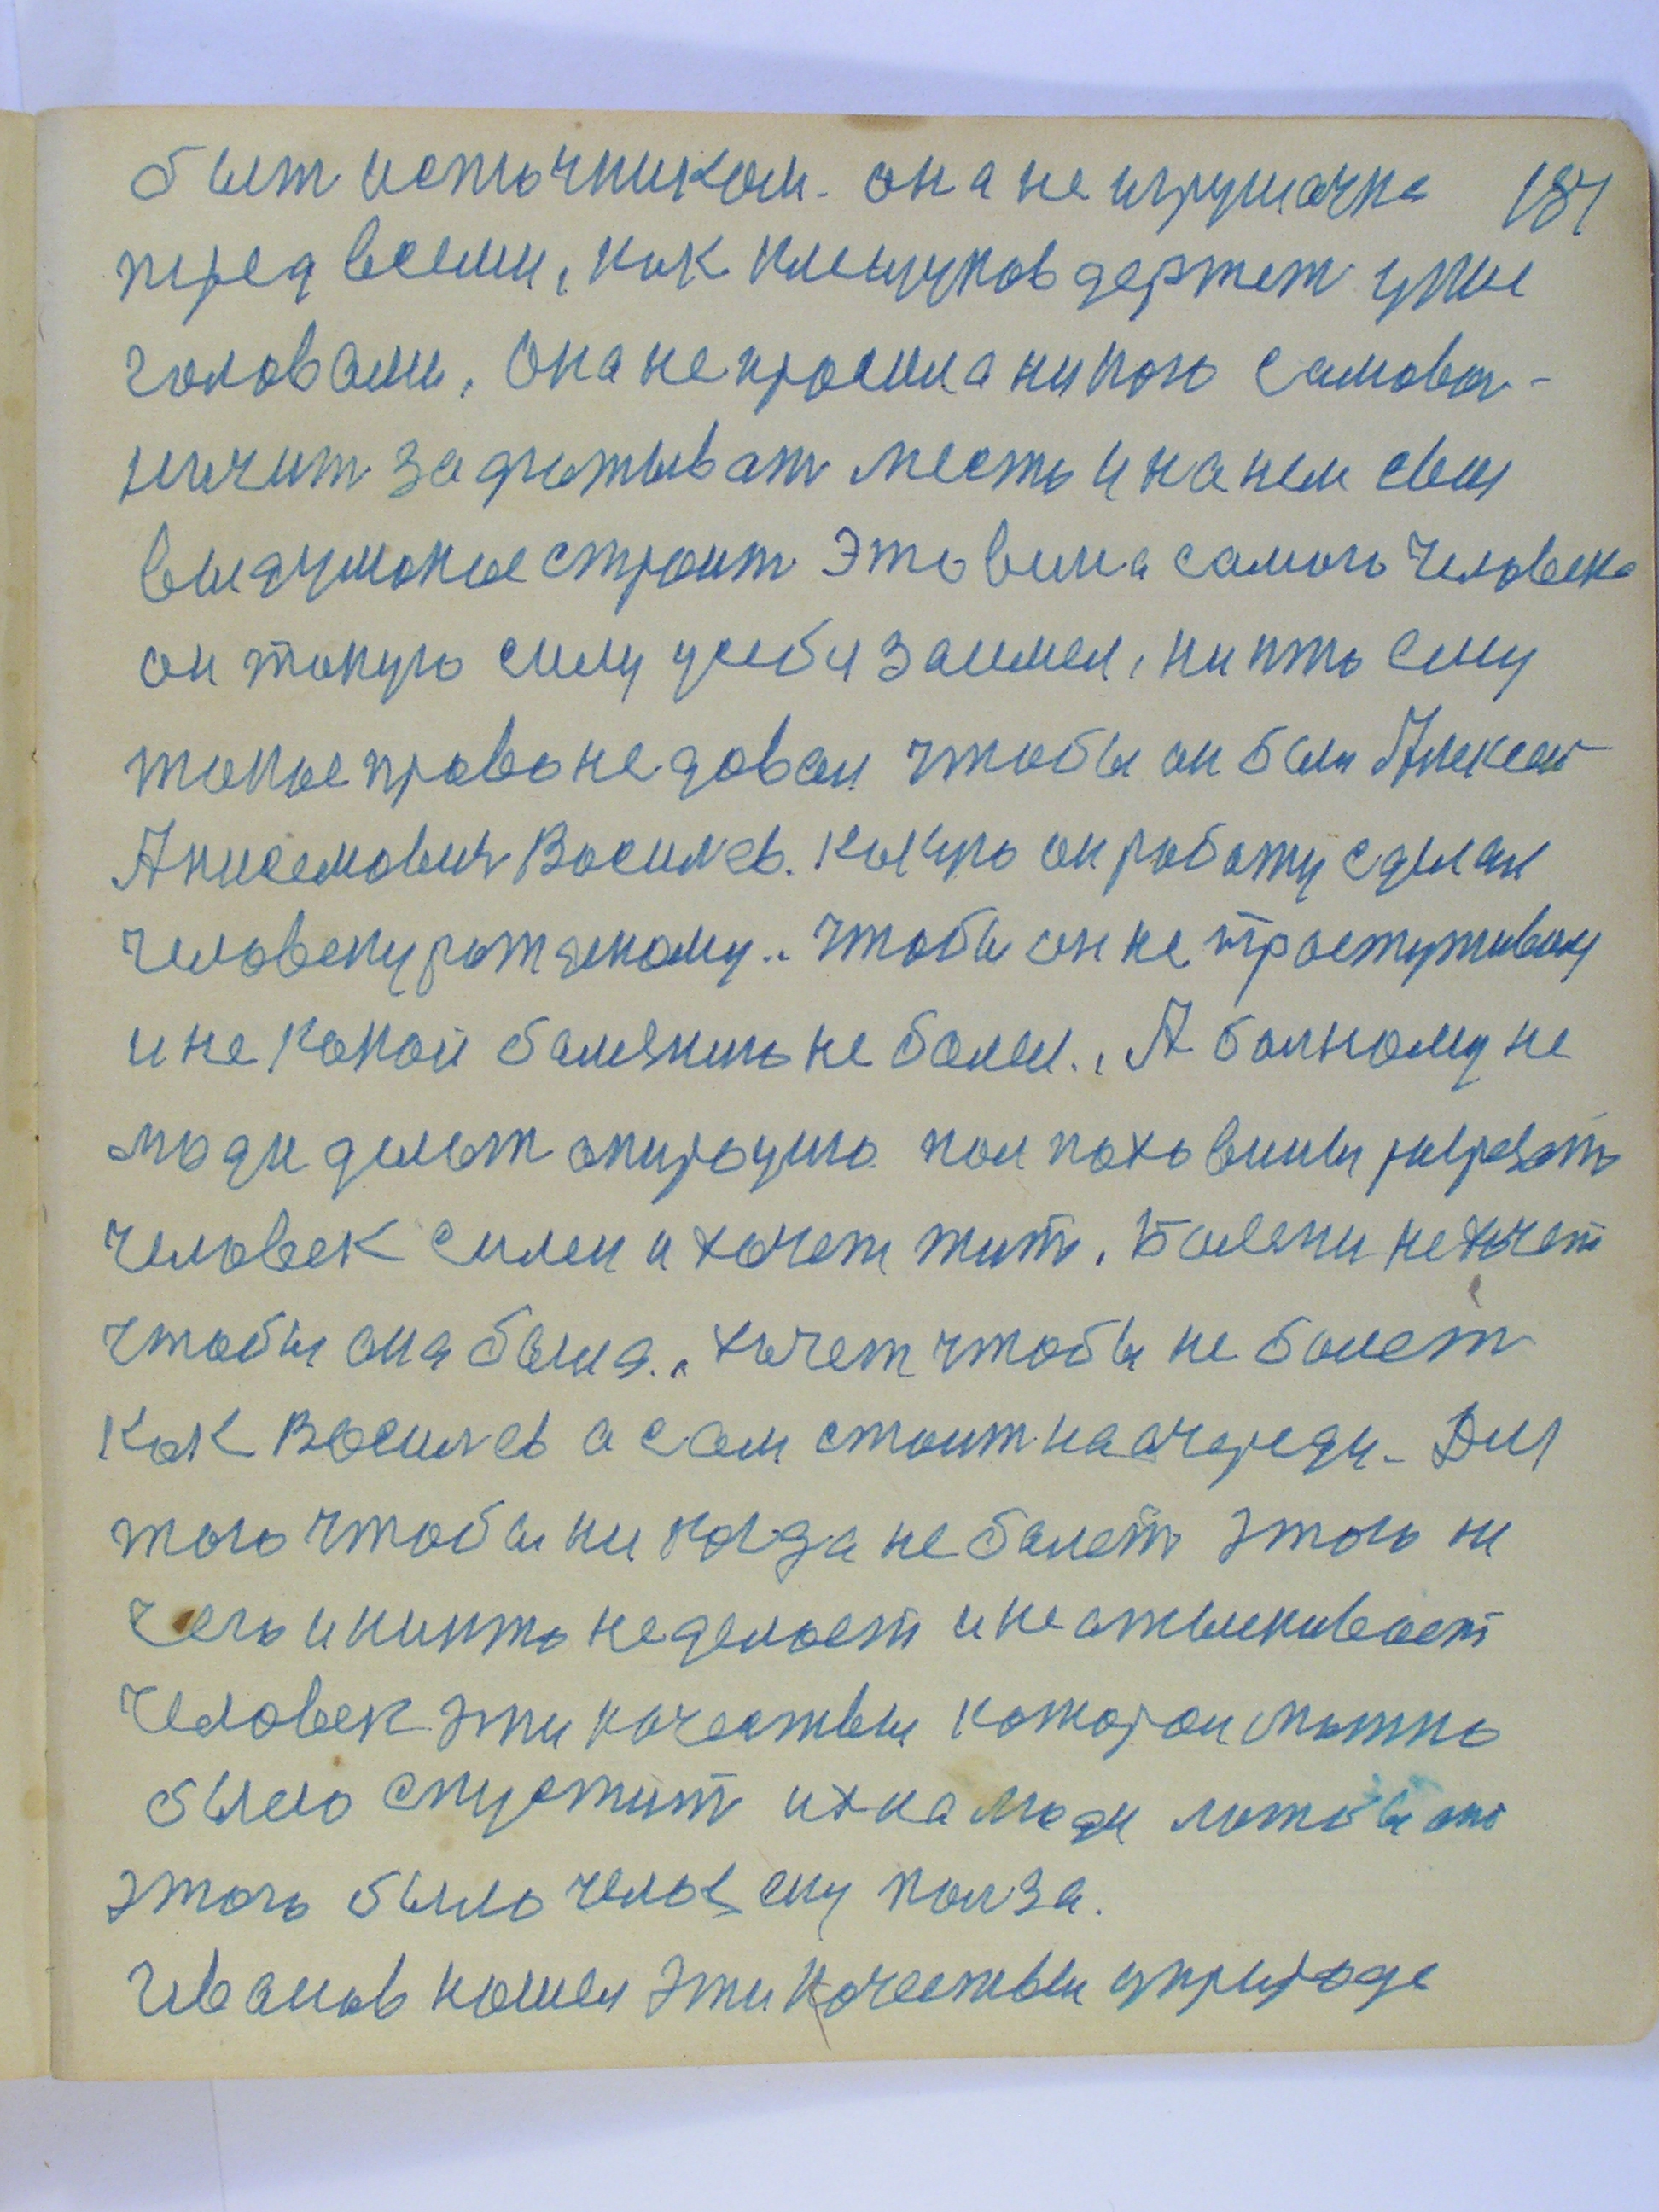 быт источником. она не игрушачка 187
перед всеми, как держет
головами, Она не просила никого самовол-
ничит захватыват место и на нем свои
выдуманое строит Это вина самого человека
он такую силу у себя заимел, никто ему
такое право не довал чтобы он был Алексей
Анисемовия Василев. какую он работу сделал
человеку ратженому.. чтобы он не простуживал
и не какой балезнию не болел., А болному не
люди делат
человек силен и хочет жит. Балезни не хочет
чтобы она была., хочет чтобы не болет
как Василев а сам стоит на очереди. Для
того чтобы ни когда не болет этого ни
чего и никто не делоет и не отыскивоет
человек эти качествы которои можно
было спустит их на люди
этого было человеку полза.
Иванов нашел эти качествы уприроде